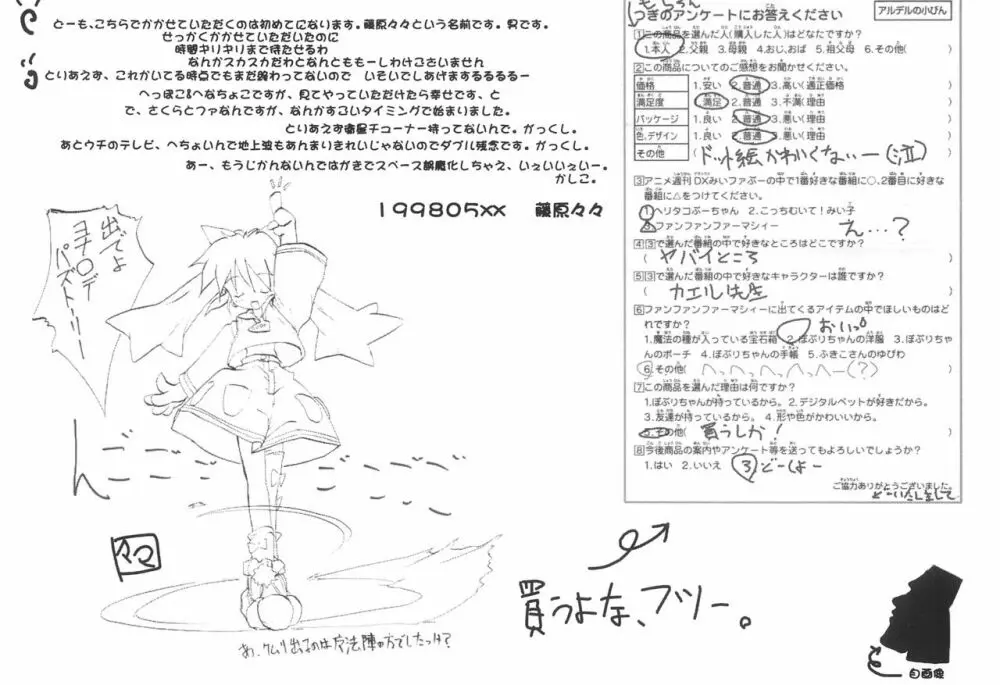 とーも、こちらでかかせていただくのは初めてになります。藤原々々という名前です。男です。
せっかくかかせていただいたのに
時間ギリギリまで待たせるわ
なんかスカスカだわとなんともも一しわけございません
とりあえず、これかいてる時点でもまだ終わってないので いそいでしあげまするるるるー
へっぽこ&へなちょこですが、見てやっていただけたら幸せです、と
で、さくらとファなんですが、なんかすごいタイミングで始まりました。
とりあえず衛星チューナー持ってないんで。がっくし。
あとウチのテレビ、へちょいんで地上波もあんまりきれいじゃないのでダブル残念です。がっくし。
あー、もうじかんないんではがきでスペース誤魔化しちゃえ、いぇいいぇいー。
かしこ。
199805xx 藤原々々
出でよ
ヨナ〇デ
パズトーリー
ごごごごご
ん
あ、ケムリ出るのは魔法陣の方でしたっけ?
もちろん
つぎのアンケートにお答えください
アルデルの小びん
1この商品を選んだ人(購入した人)はどなたですか?
1.本人 2.父親 3.母親 4.おじ,おば 5.祖父母 6.その他( )
2この商品についてのご感想をお聞かせください。
価格 1.安い 2.普通 3.高い(適正価格 )
満足度 1.満足 2.普通 3.不満(理由 )
パッケージ 1.良い 2.普通 3.悪い(理由 )
色,デザイン 1.良い 2.普通 3.悪い(理由 )
その他 (ドット絵かわいくないー(泣) )
3アニメ週刊DXみいファぷーの中で1番好きな番組に○、2番目に好きな
番組に△をつけてください。
1.ヘリタコぷーちゃん 2.こっちむいて!みい子
3.ファンファンファーマシィー え…?
4 3で選んだ番組の中で好きなところはどこですか?
( ヤバイところ )
5 3で選んだ番組の中で好きなキャラクターは誰ですか?
( カエル先生 )
6ファンファンファーマシィーに出てくるアイテムの中でほしいものはど
れですか? おいっ
1.魔法の種が入っている宝石箱 2.ぽぷりちゃんの洋服 3.ぽぷりちゃ
んのポーチ 4.ぽぷりちゃんの手帳 5.ふきこさんのゆびわ
6.その他( へっへっへっへっへー(?) )
7この商品を選んだ理由は何ですか?
1.ぽぷりちゃんが持っているから。2.デジタルペットが好きだから。
3.友達が持っているから。 4.形や色がかわいいから。
5.その他( 買うしか! )
8今後商品の案内やアンケート等を送ってもよろしいでしょうか?
1.はい 2.いいえ 3 どーしよー
ご協力ありがとうございました。
どーいたしまして
買うよな、フツー。
自画像